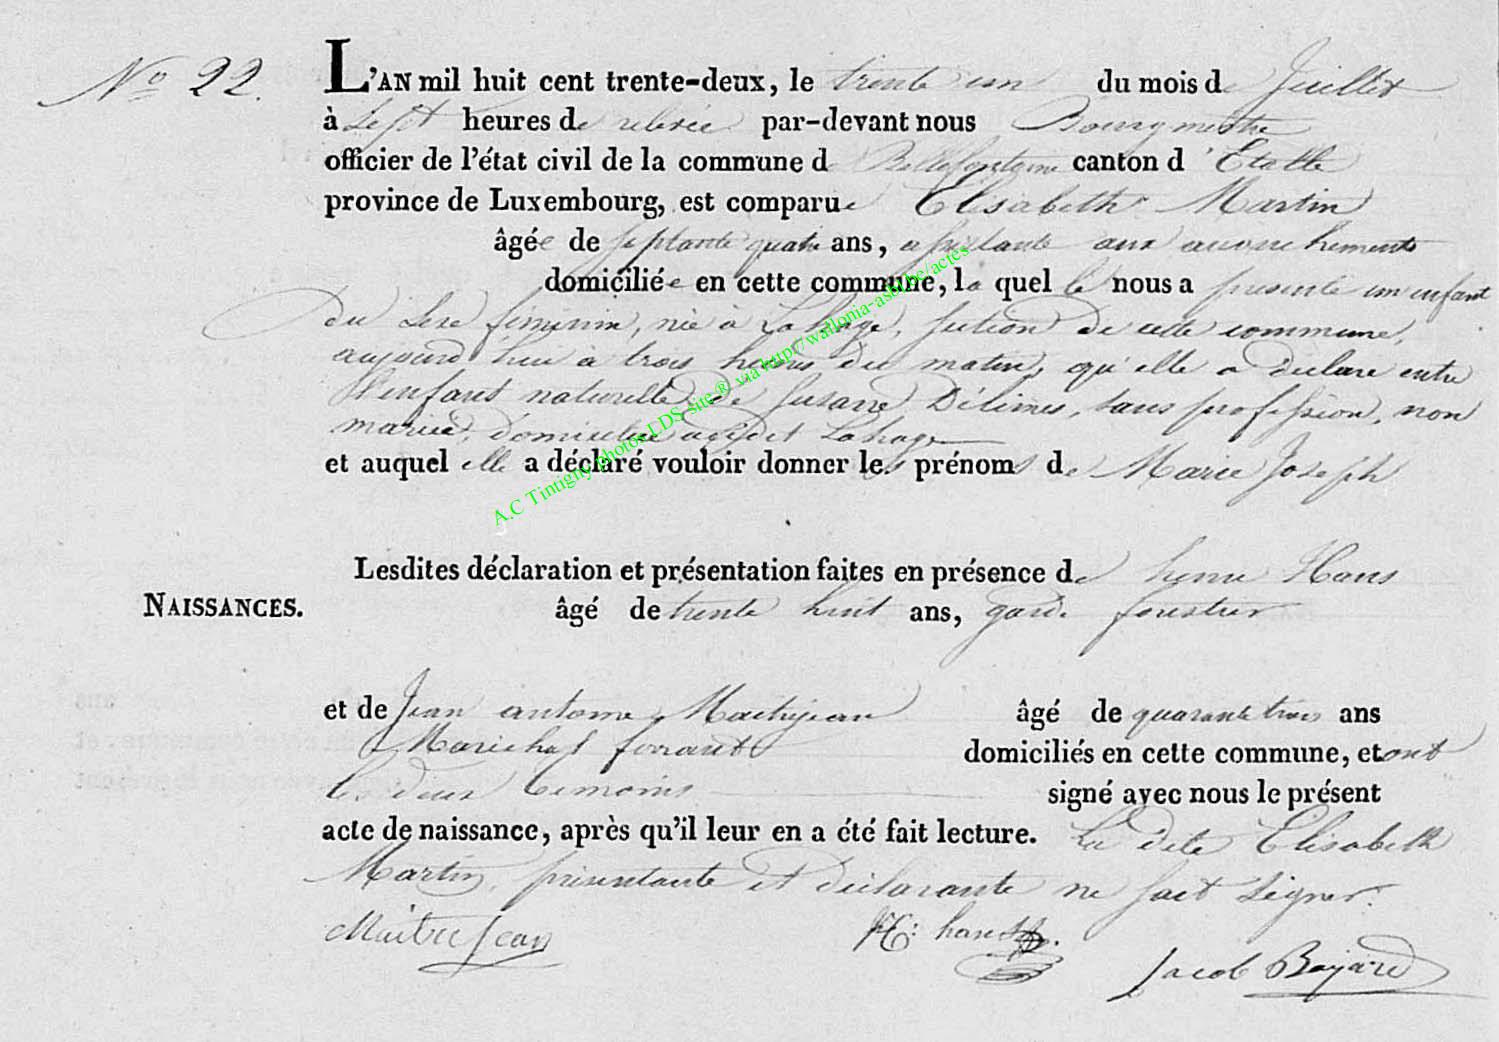 No 22.
L'AN mil huit cent trente-deux, le trente un du mois de Juillet
à Sept heures de relevée par-devant nous Bourgmestre
officier de l'état civil de la commune de Bellefontaine canton d'Etalle
province de Luxembourg, est comparue Elisabeth Martin
âgée de septante quatre ans, assistante aux accouchements
domiciliée en cette commune, la quelle nous a presenté un enfant
du sexe feminin, née à Lahage, section de cette commune,
aujourd'hui à trois heures du matin, qu'elle a déclaré être
l'enfant naturelle de Susanne, sans profession, non
mariée, domiciliée Lahage
et auquel elle a déclaré vouloir donner les prénoms de Marie Joseph
Lesdites déclaration et présentation faites en présence de henri Hans
NAISSANCES.
âgé de trente huit ans, garde forestier
et de Jean antoine Maitrejean âgé de quarante trois ans
Marichal ferrant domiciliés en cette commune, et ont
les deux temoins signé avec nous le présent
acte de naissance, après qu'il leur en a été fait lecture. La dite Elisabeth
Martin, présentante et déclarante ne sait signer.
Maitrejean H: hans Jacob Bajard
A.C Tintigny photos LDS site ® via http://wallonia-asbl.be/actes